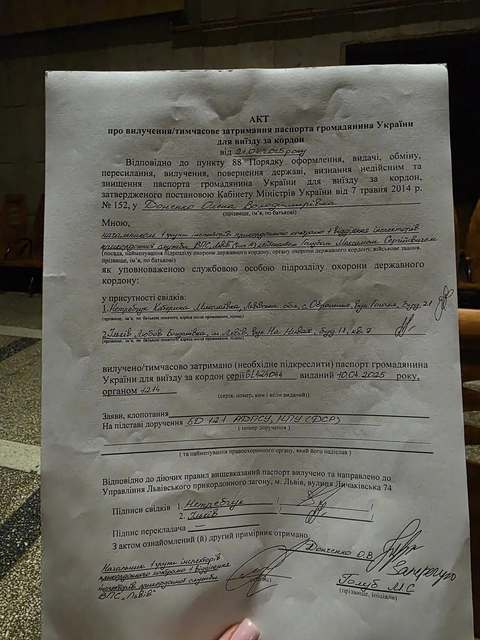 АКТ
про вилучення/тимчасове затримання паспорта громадянина України
для виїзду за кордон
від
Відповідно до пункту 88 Порядку оформлення, видачі, обміну,
пересилання, вилучення, повернення державі, визнання недійсним та
знищення паспорта громадянина України для виїзду за кордон,
затвердженого постановою Кабінету Міністрів України від 7 травня 2014 р.
№ 152, у Доненко Олена Володимирівна
(прізвище, ім'я, по батькові)
Мною,
начальником 1 групи інспекторів прикордонного контролю 1 відділення інспекторів
прикордонної служби ВПС Голубом Максимом Сергійовичем
(посада, найменування підрозділу охорони державного кордону, органу охорони державного кордону, військове звання,
прізвище, ім'я, по батькові)
як уповноваженою службовою особою підрозділу охорони державного
кордону:
у присутності свідків:
1. Нетребчук Катерина Миколаївна, Львівська обл., с. буд. 21
2. Ільків Любов м. Львів, вул. На Нивах, буд. 18, кв. 7
вилучено/тимчасово затримано (необхідне підкреслити) паспорт громадянина
України для виїзду за кордон серії виданий 10.04.2025 року,
органом 1214
(серія, номер, ким і коли виданий)
Заяви, клопотання
На підставі доручення БД 121
(номер доручення)
(та найменування правоохоронного органу, який його надіслав)
Відповідно до діючих правил вищевказаний паспорт вилучено та направлено до
Управління Львівського прикордонного загону, м. Львів, вулиця Личаківська 74
Підписи свідків 1. Нетребчук
2. Ільків
Підпис перекладача
З актом ознайомлений (й) другий примірник отримано
Доненко О.В.
Начальник 1 групи інспекторів
прикордонного контролю 1 відділення
інспекторів прикордонної служби
ВПС "Львів"
Голуб М.С
(прізвище, ініціали)